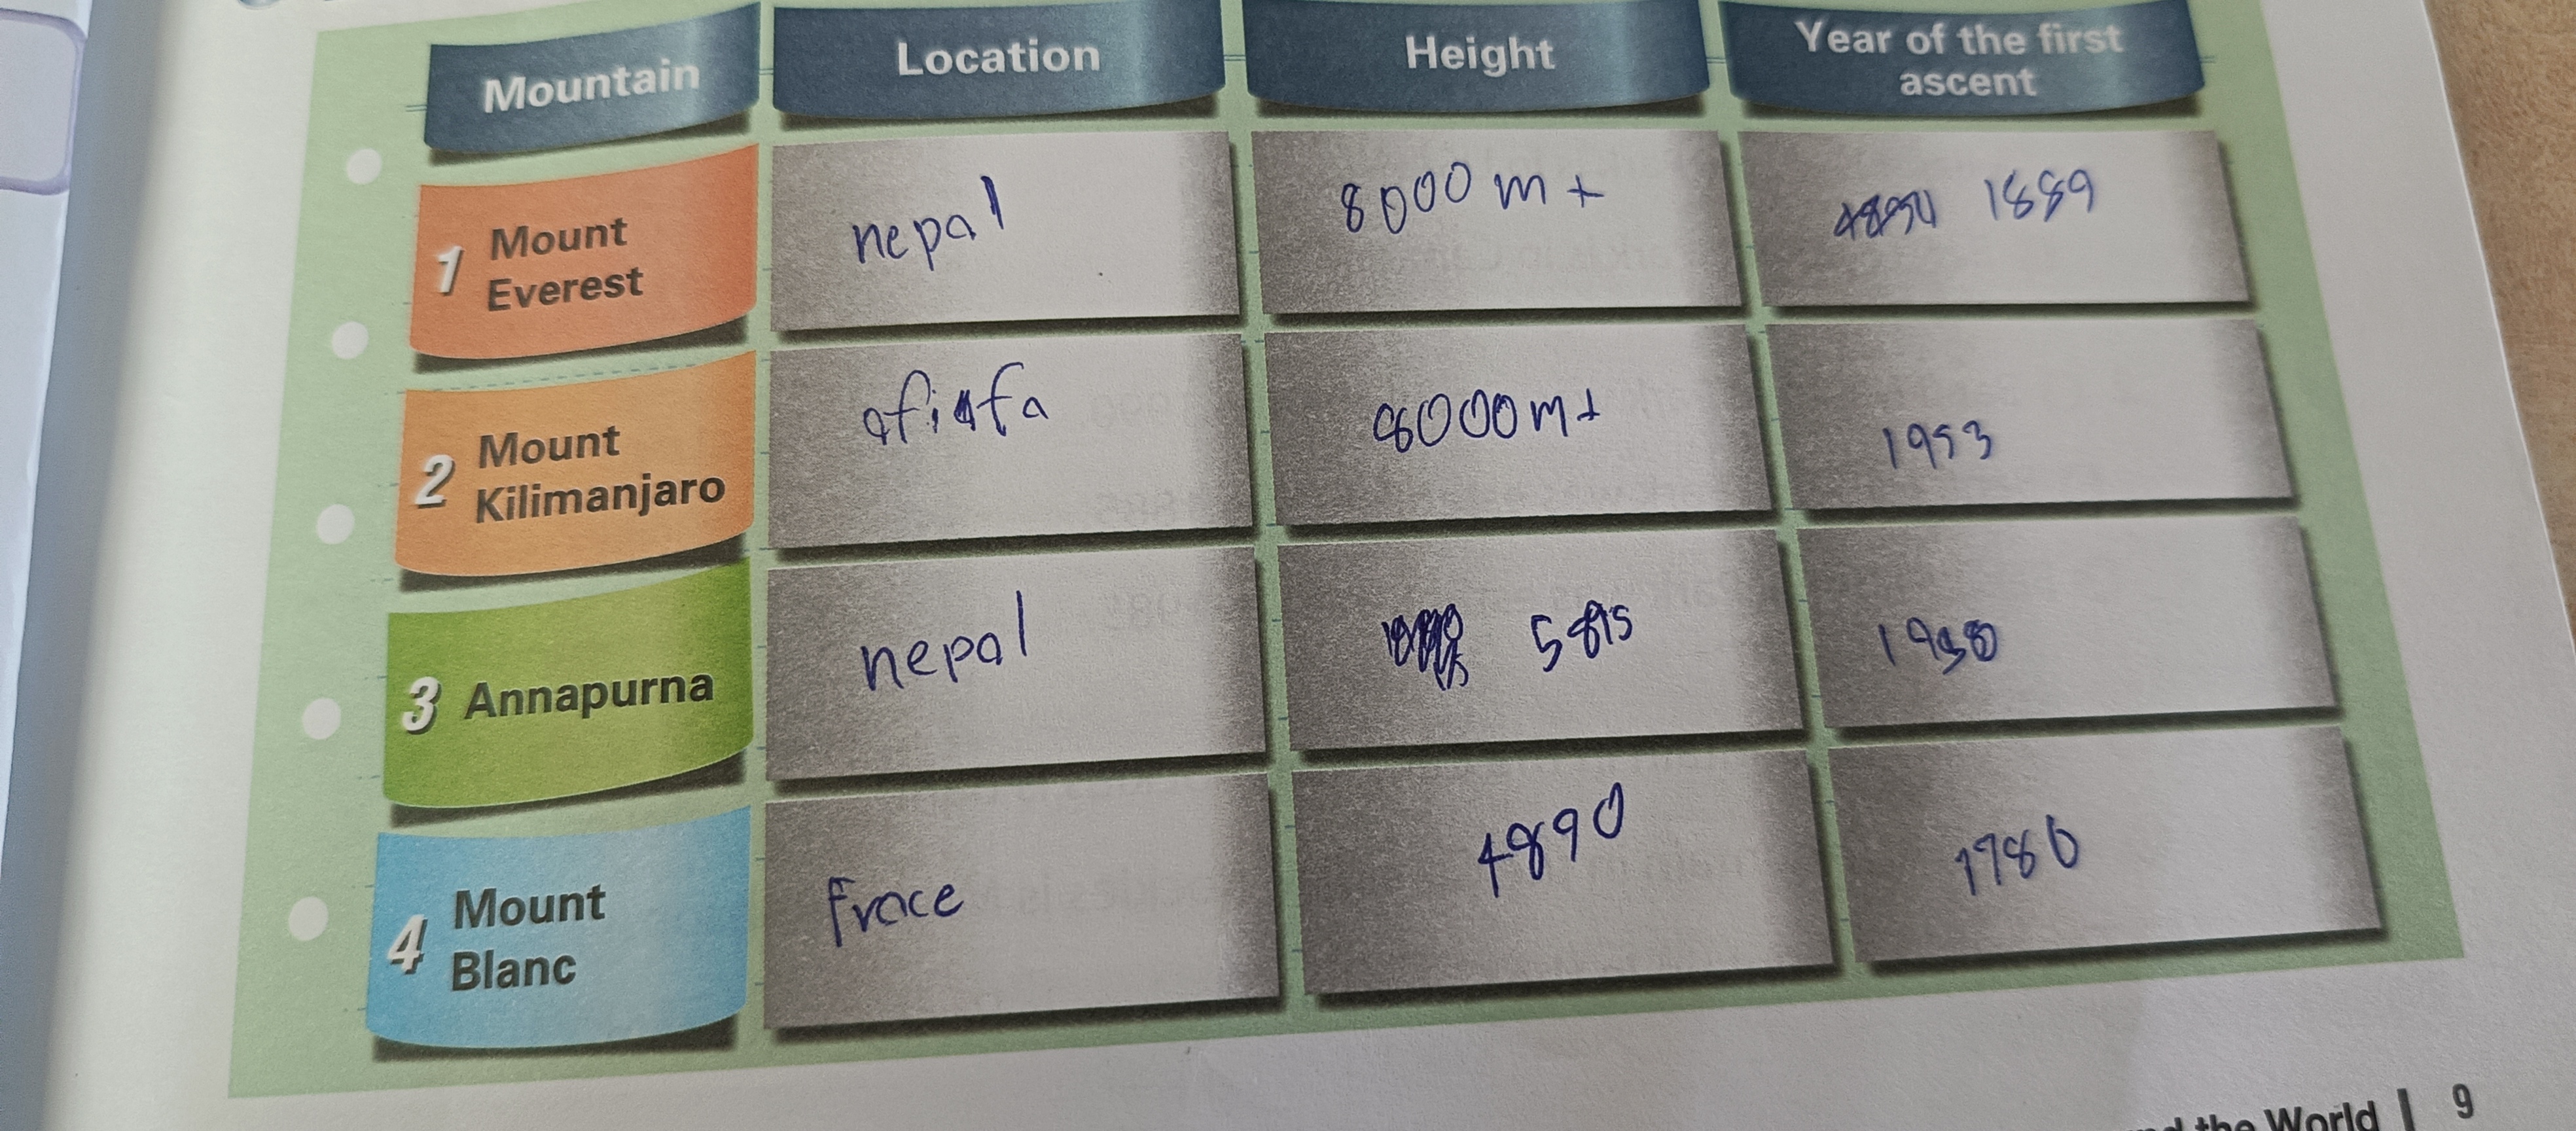 Mountain
Location
Height
Year of the first
ascent
1 Mount
Everest
nepal
8000 m +
1889
2 Mount
Kilimanjaro
8000m+
1953
3 Annapurna
nepal
5895
1950
4 Mount
Blanc
Frace
4890
1786
the World | 9